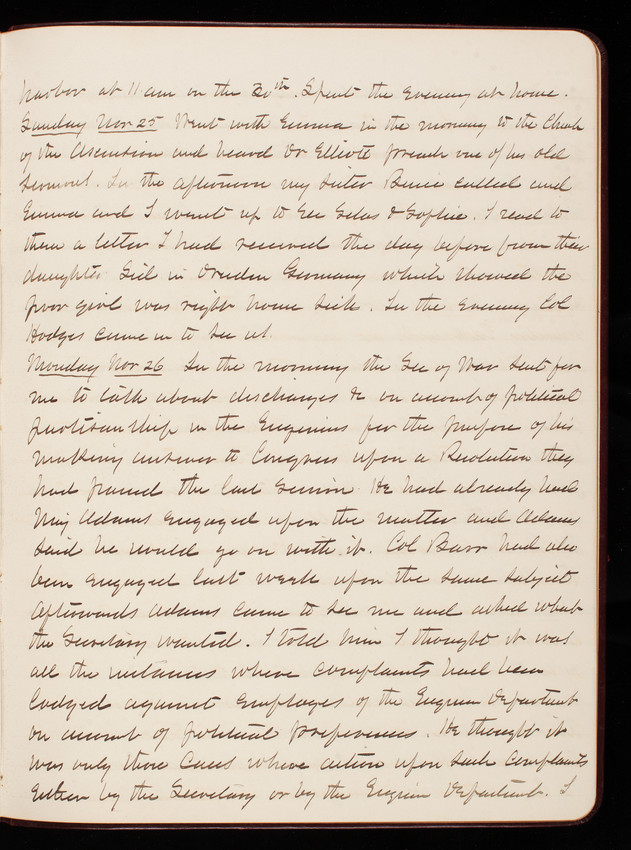 harbor at 11 am on the 30th. Spent the evening at home.
Sunday Nov 25 Went with Emma in the morning to the Church
of the Ascension and heard Dr Elliott preach one of his old
sermons. In the afternoon my sister called and
Emma and I went up to see Silas & Sophie. I read to
them a letter I had received the day before from their
daughter Sid in Dresden Germany which showed the
poor girl was right home sick. In the evening Col
Hodges came in to see us.
Monday Nov 26 In the morning the Sec of War sent for
me to talk about discharges &c on account of political
partisanship in the Engineers for the purpose of his
making answer to Congress upon a Resolution they
had passed the last session. He had already had
Maj Adams engaged upon the matter and Adams
said he would go on with it. Col Barr had also
been engaged last week upon the same subject
Afterwards Adams came to see me and asked what
the Secretary wanted. I told him I thought it was
all the instances where complaints had been
lodged against employes of the Engineer Department
on account of political preferences. He thought it
was only those cases where action upon such complaints
either by the Secretary or by the Engineer Department. I